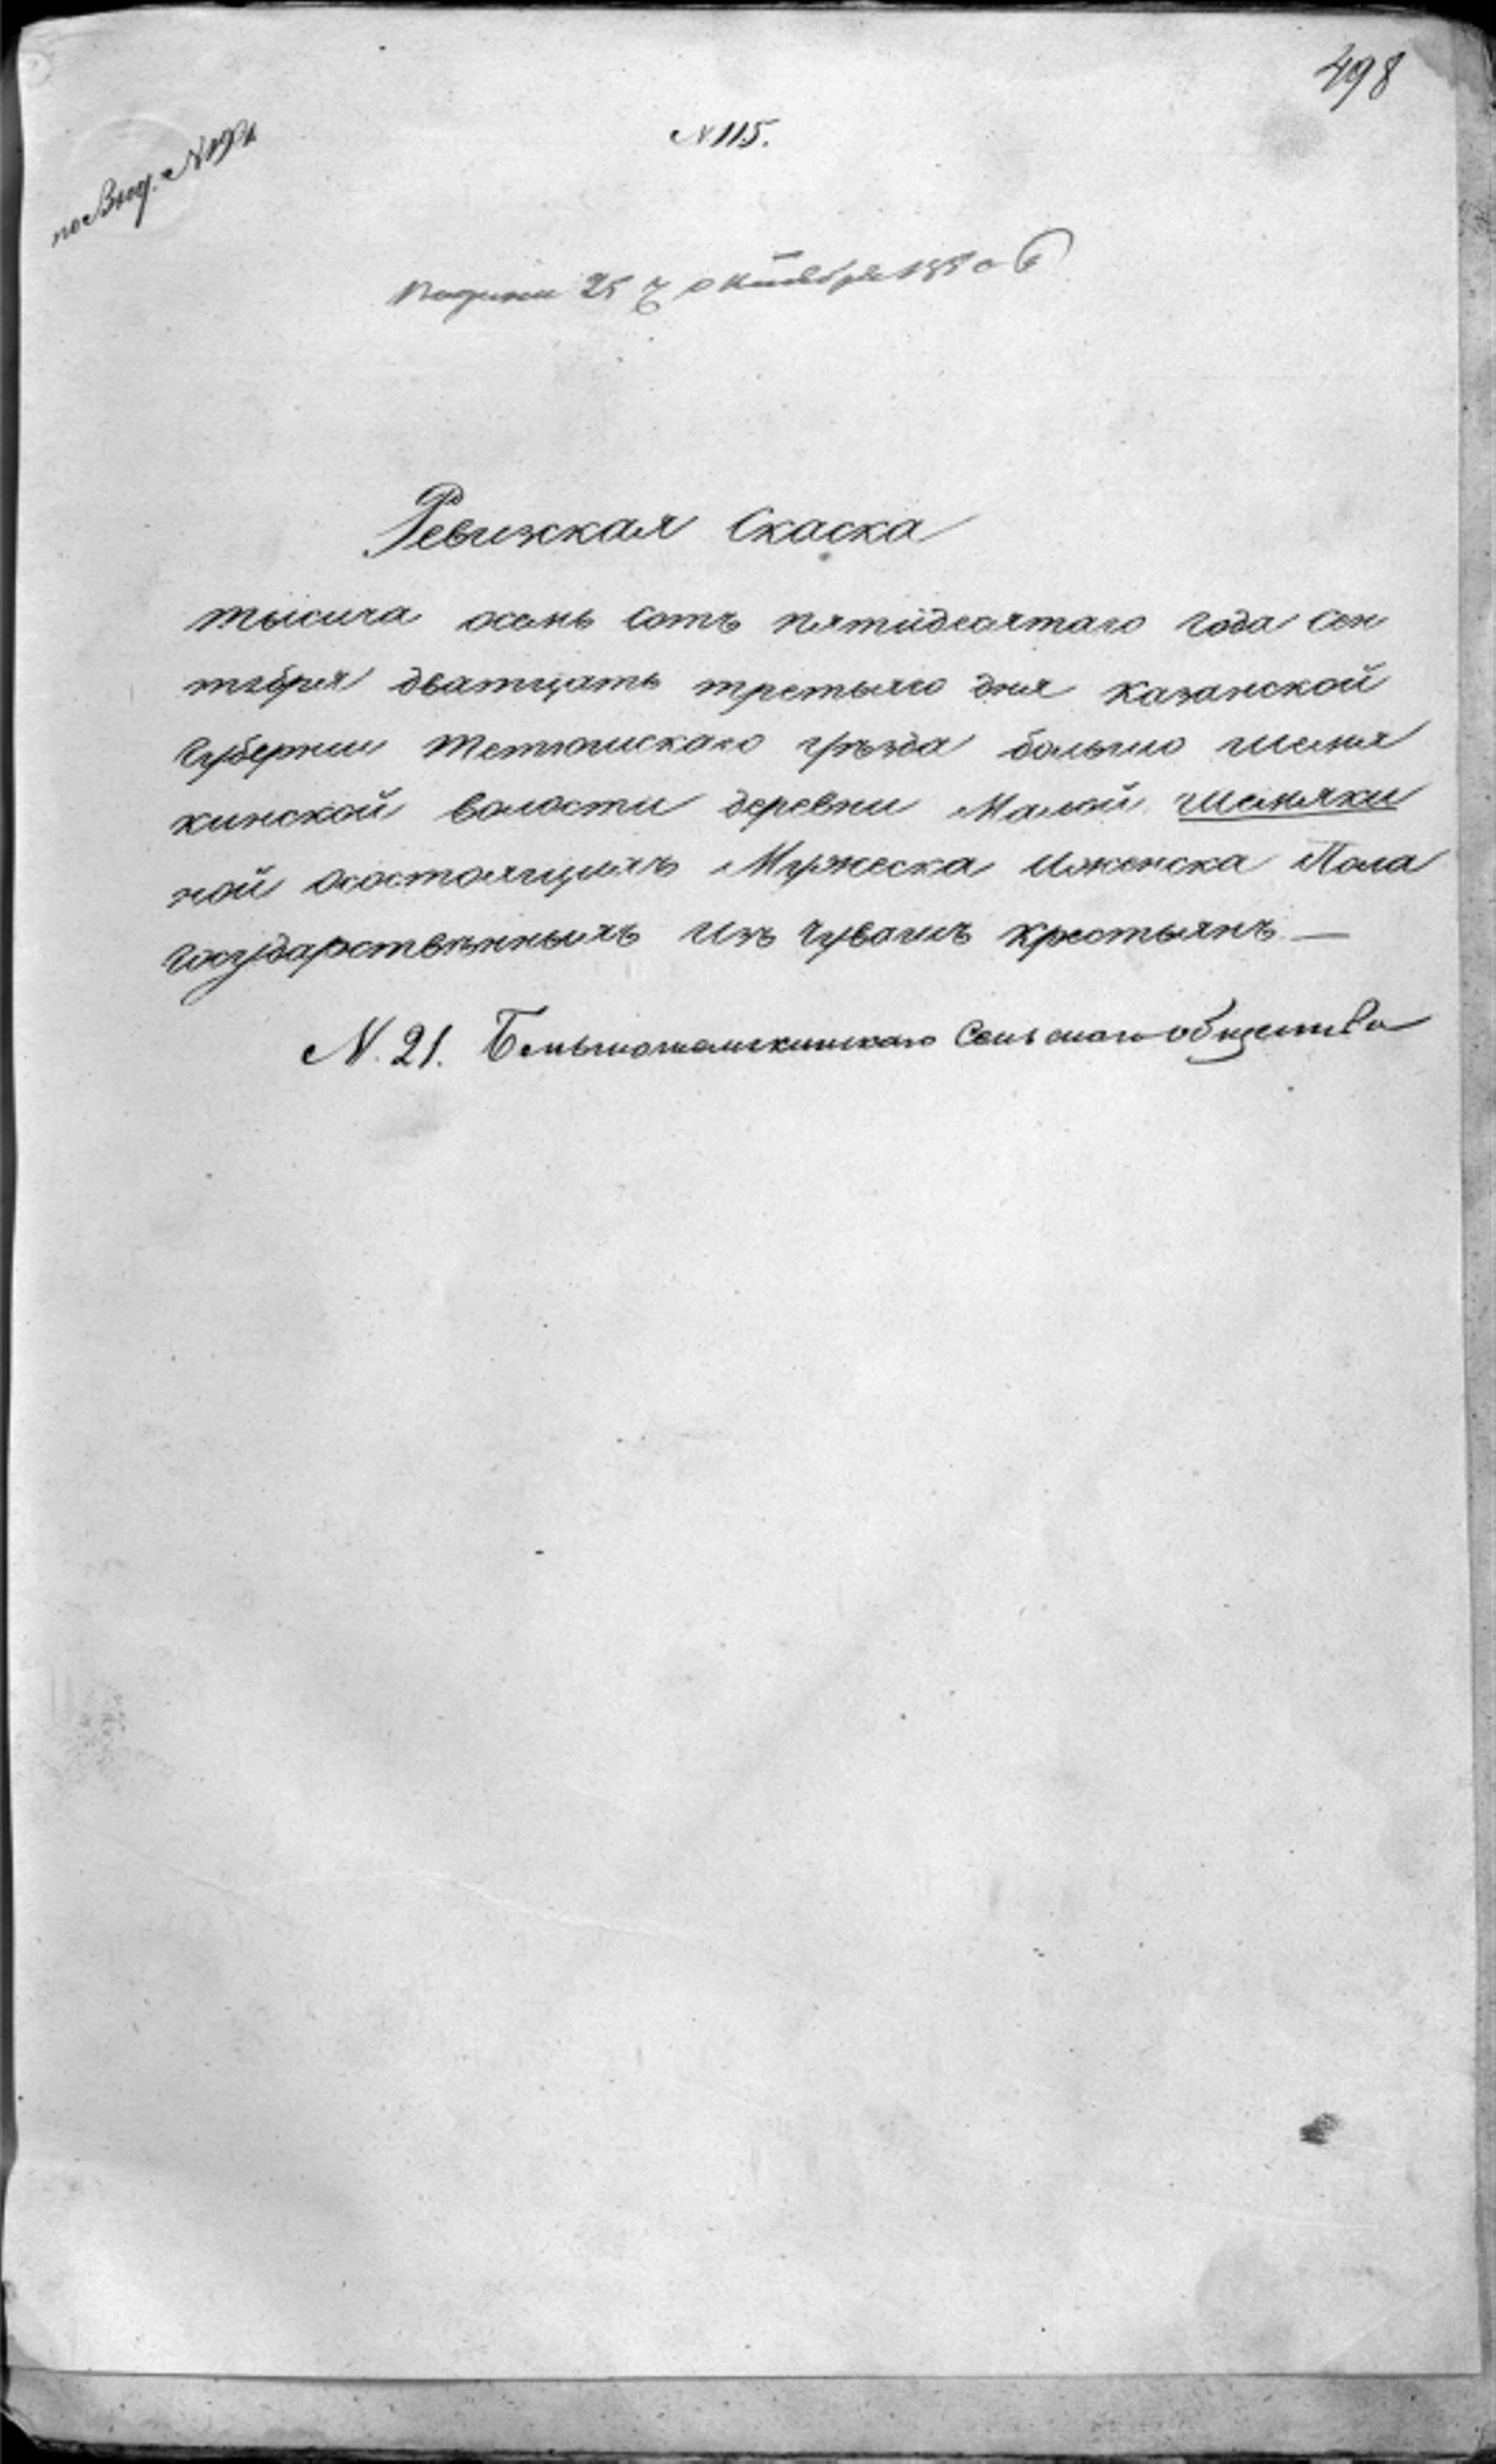 498
№ 115.
по Вход. №
25 октября 1850
Ревижская Скаска
тысича осемь сотъ пятидесятаго года Сен
тебря дватцать третьяго дня казанской
Губернии тетюшскаго уѣзда большо шемя
кинской волости деревни Малой Шемяки
ной осостоящихъ Мужеска Иженска Пола
государственныхъ Изъ Чувашъ крестьянъ —
N. 21. Большешемякинскаго Сельскаго общества